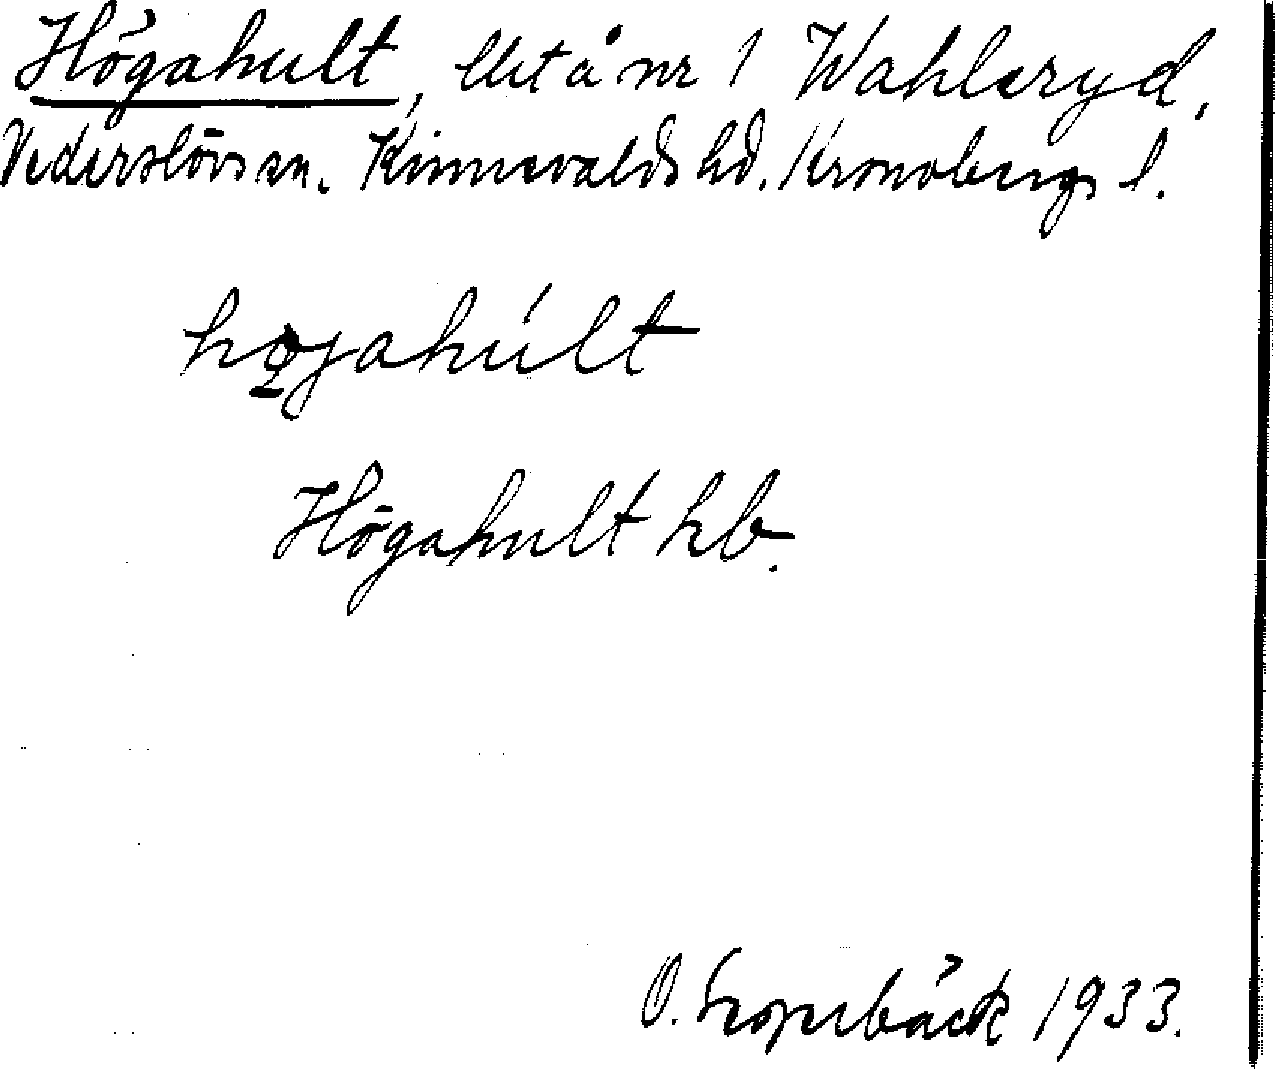 Högahult, llet å nr 1 Wahlsryd,
Vederslövs sn. Kinnevalds hd. Kronobergs l.
högahúlt
Högahult hb.
O. 1933.